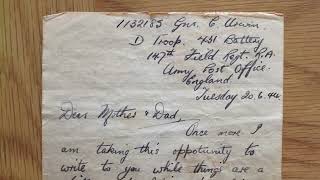 1132185 Gnr. C.
D Troop. 431 Battery
147th Field Regt. R.A.
Army Post Office.
England
Tuesday 20.6.44
Dear Mother & Dad,
Once more I
am taking this opportunity to
write to you while things are a